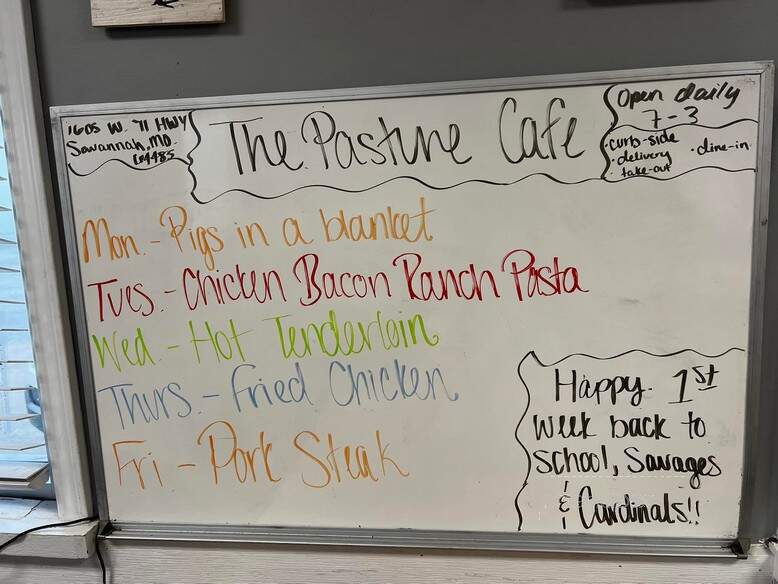 1605 W. 71 HWY
Savannah, MO.
64485
The Pasture Cafe
Open daily
7-3
• curb-side
• delivery
• take-out
• dine-in
Mon. - Pigs in a blanket
Tues. - Chicken Bacon Ranch Pasta
Wed. - Hot Tenderloin
Thurs. - Fried Chicken
Fri - Pork Steak
Happy 1st
week back to
school, Savages
& Cardinals!!